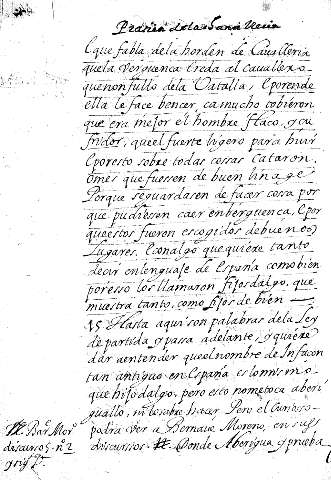 que fabla de la horden de Caualleria
que la Verguenca Ueda al Cauallero
que non fullo de la Vatalla, E por ende
ella le face bencer, ca mucho tobieron
que era mejor el hombre flaco, y su
fridor, que el fuerte ligero para huir
E por esto sobre todas cossas Cataron,
Omes que fuesen de buen linage
Porque se guardasen de facer cosa por
que pudiesen caer en berguenca, E por
que estos fueron escogidos de buenos
Lugares, E con algo que quiere tanto
decir en lenguaje de España como bien
por esso los llamaron fijosdalgo, que
muestra tanto, como fijos de bien
15 Hasta aqui son palabras de la Ley
de partida y passa adelante, y quiere
dar a entender que el nombre de Infancon
tan antiguo en España es lo mismo
que hijodalgo, pero esto no me toca aberi
guallo, ni lo tube hacer Pero el Curioso
podra ver a Bernaue Moreno, en sus
discursos. Donde Aberigua y prueba
Bar.e Mor
discurso 5. n.o 2
y sig.tes